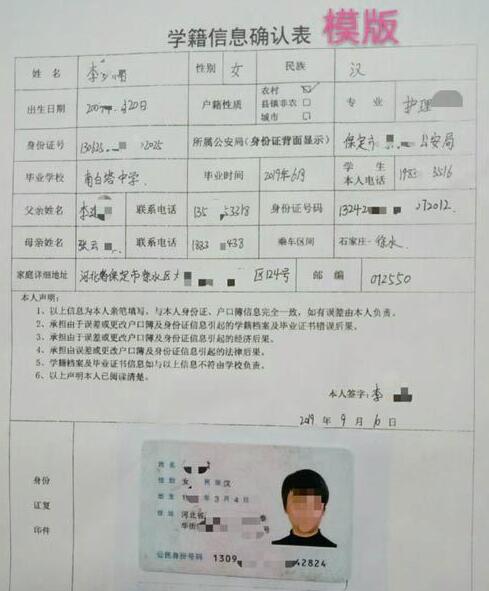 学籍信息确认表 模版
姓名 李 性别 女 民族 汉
出生日期 200 年 20日 户籍性质 农村 ☑ 县镇非农 □ 城市 □ 专业 护理
身份证号 130625 2025 所属公安局(身份证背面显示) 保定市 公安局
毕业学校 南白塔中学 毕业时间 2019年6月 学生本人电话 1983 3516
父亲姓名 李 联系电话 135 53318 身份证号码 13242 272012
母亲姓名 张云 联系电话 1883 438 乘车区间 石家庄-徐水
家庭详细地址 河北省保定市徐水区大 区124号 邮编 072550
本人声明:
1、以上信息为本人亲笔填写,与本人身份证、户口簿信息完全一致,如有误差由本人负责。
2、承担由于误差或更改户口簿及身份证信息引起的学籍档案及毕业证书错误后果。
3、承担由误差或更改户口簿及身份证信息引起的经济后果。
4、承担由误差或更改户口簿及身份证信息引起的法律后果。
5、学籍档案及毕业证书信息如与以上信息不符由学校负责。
6、以上声明本人已阅读清楚。
本人签字:李
2019 年 9 月 10 日
身份证复印件
姓名
性别 女 民族 汉
出生 年 3 月 4 日
住址 河北省
华街 号
公民身份号码 1309 42824